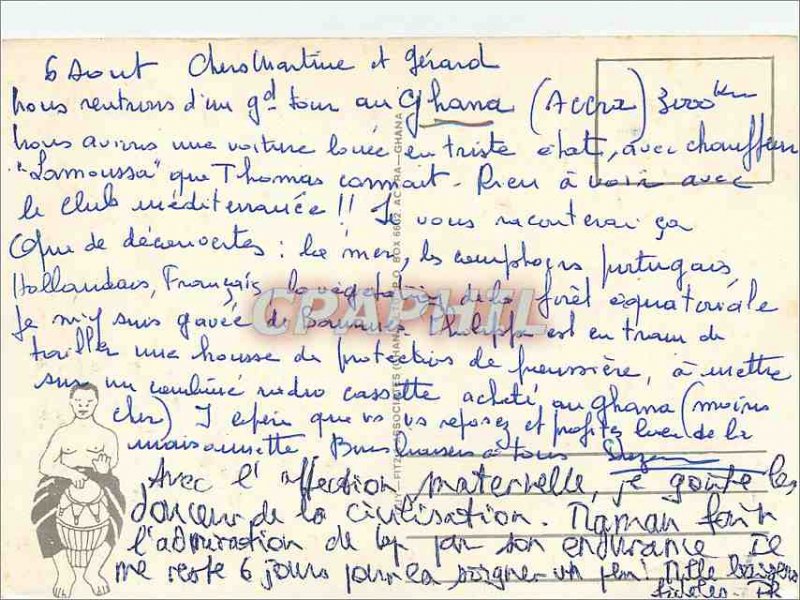 6 Aout Chers Martine et Gérard
nous rentrons d'un gd tour au Ghana (Accra) 3000 km
nous avions une voiture louée en triste état, avec chauffeur
"Lamoussa" que Thomas connait. Rien à voir avec
le club méditerranée !! Je vous raconterai ça
Que de découvertes : la mer, les comptoirs portugais,
Hollandais, Français, la végétation de la forêt équatoriale
Je m'y suis gavée de Bananes Philippe est en train de
tailler une housse de protection de poussière, à mettre
sur un combiné radio cassette acheté au ghana (moins
cher) J'espère que vs vs reposez et profitez bien de la
maisonnette Bons baisers à tous
Avec l'affection maternelle, je goûte les
douceur de la civilisation. Maman fait
l'admiration de par son endurance Il
me reste 6 jours pour la soigner un peu! Mille baisers
FITZ ASSOCIATES (GHANA) P.O. BOX 6602, ACCRA—GHANA
CPAPHIL